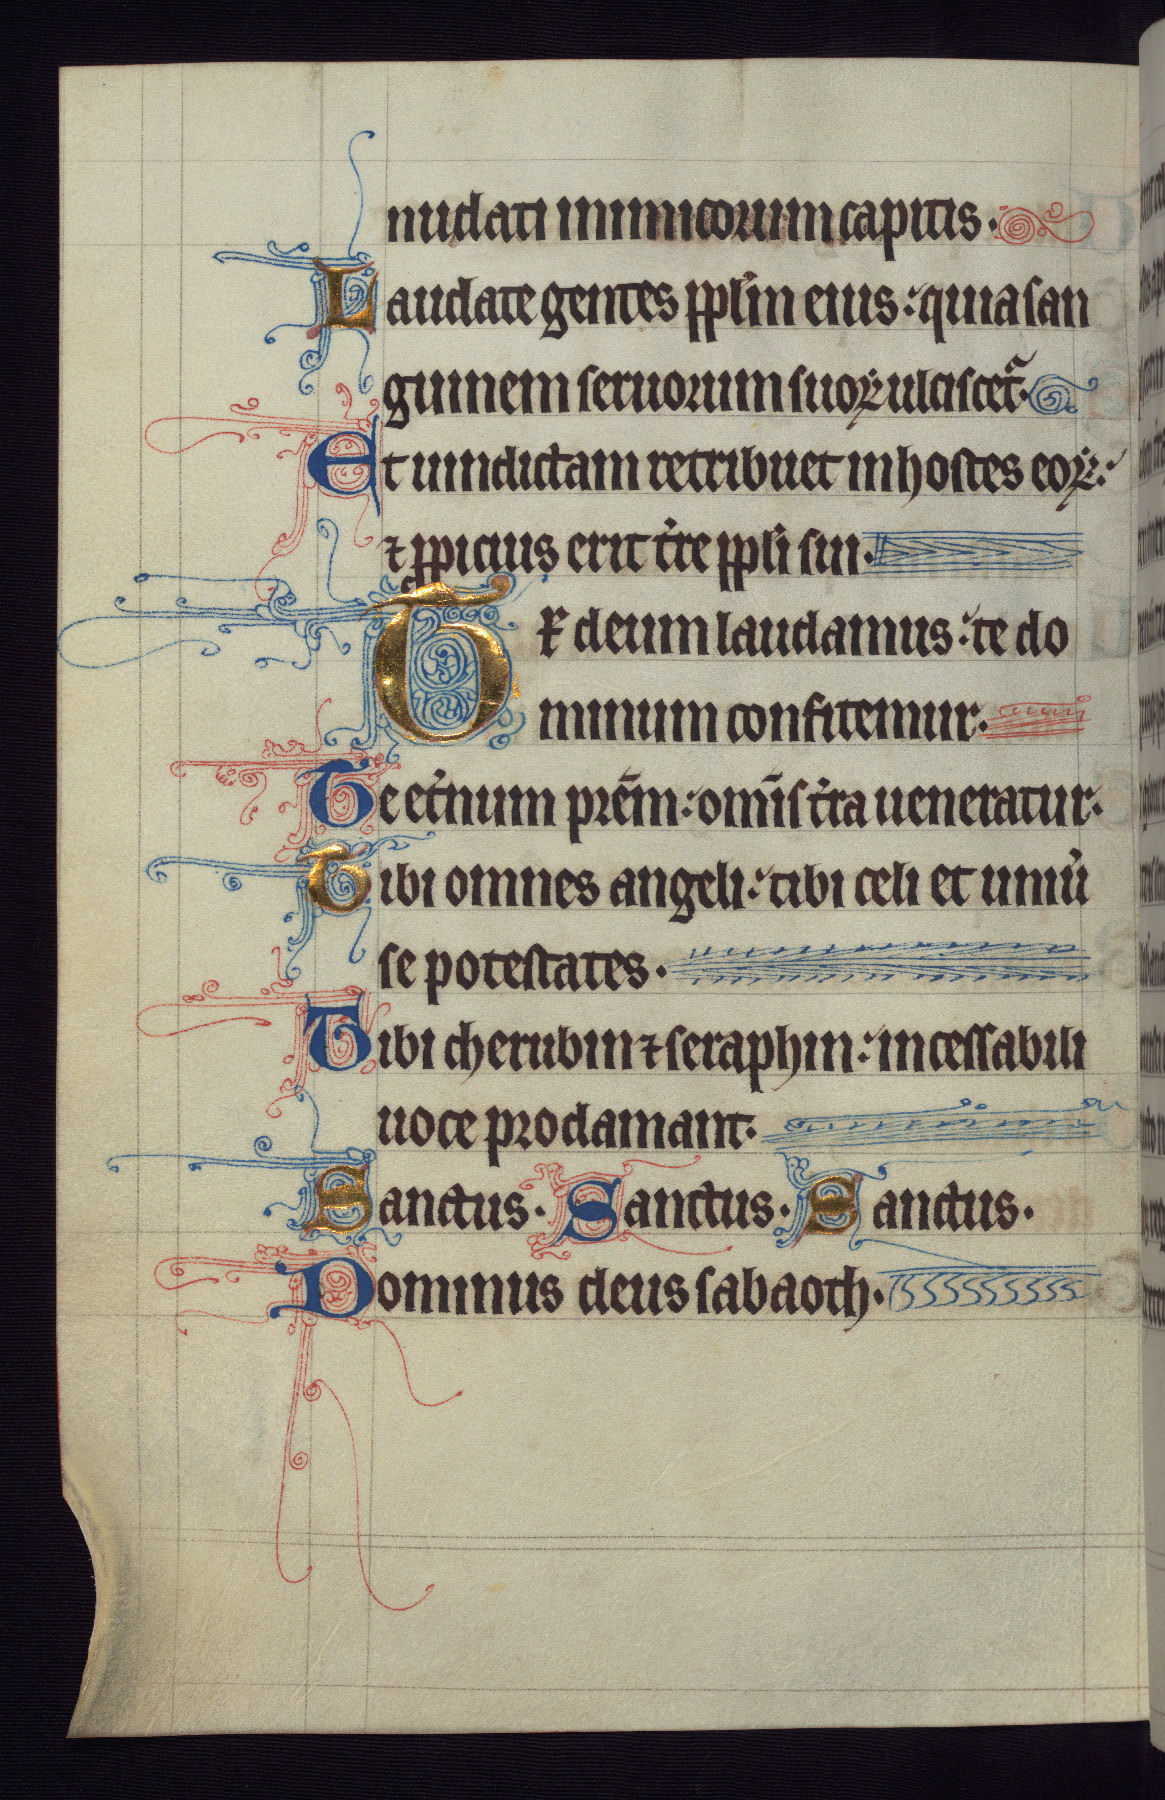 nudati inimicorum capitis.
Laudate gentes pplm̄ eius: quia san
guinem seruorum suoꝝ ulciscet᷑.
Et uindictam retribuet in hostes eoꝝ:
⁊ ꝓpicius erit t̾re ppl̾i sui.
TE deum laudamus: te do
minum confitemur.
Te et̾num prēm: om̄is t̾ra ueneratur.
Tibi omnes angeli: tibi celi et uniu̾
se potestates.
Tibi cherubin ⁊ seraphin: incessabili
uoce proclamant.
Sanctus. Sanctus. Sanctus.
Dominus deus sabaoth.